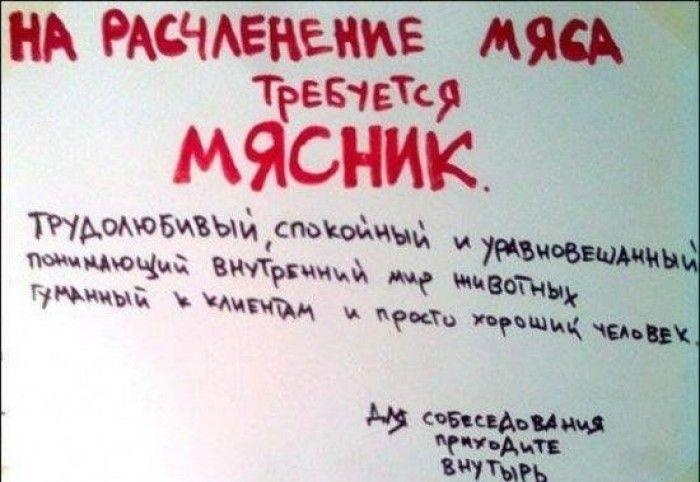 НА РАСЧЛЕНЕНИЕ МЯСА
ТРЕБУЕТСЯ
МЯСНИК.
ТРУДОЛЮБИВЫЙ, спокойный и УРАВНОВЕШАННЫЙ
понимающий ВНУТРЕННИЙ мир животных
ГУМАННЫЙ к клиентам и просто хороший ЧЕЛОВЕК.
Для собеседования
приходите
внутырь